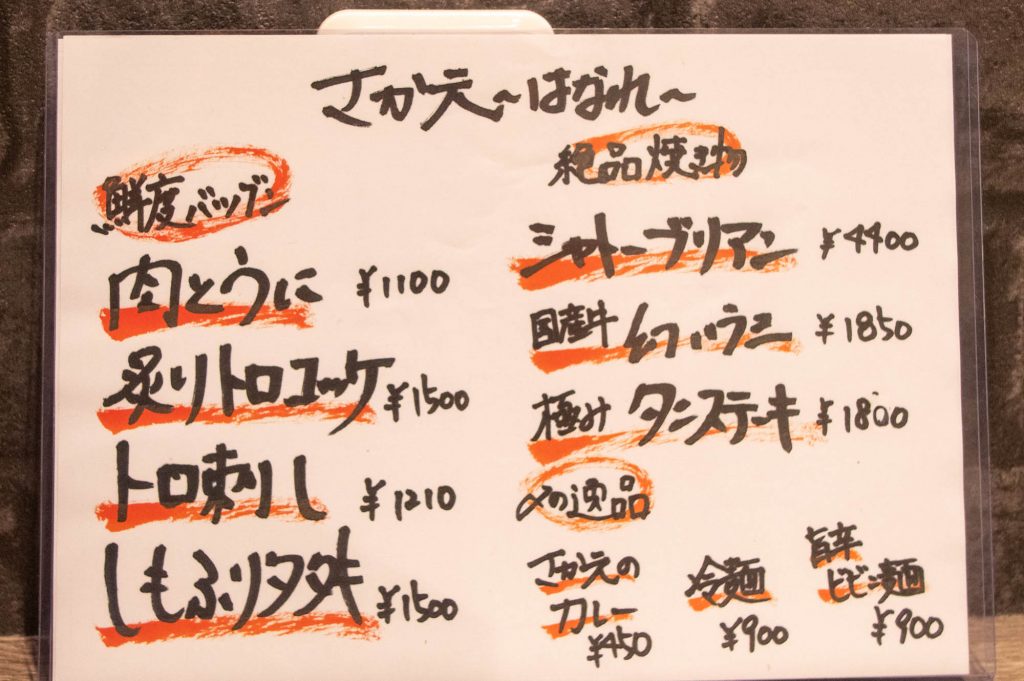 さかえ～はなれ～
鮮度バツグン
肉とうに ¥1100
炙りトロユッケ ¥1500
トロ刺し ¥1210
しもふりタタキ ¥1500
絶品焼き物
シャトーブリアン ¥4400
国産牛 ハラミ ¥1850
極み タンステーキ ¥1800
〆の逸品
さかえの
カレー
¥450
冷麺
¥900
旨辛
ビビン麺
¥900